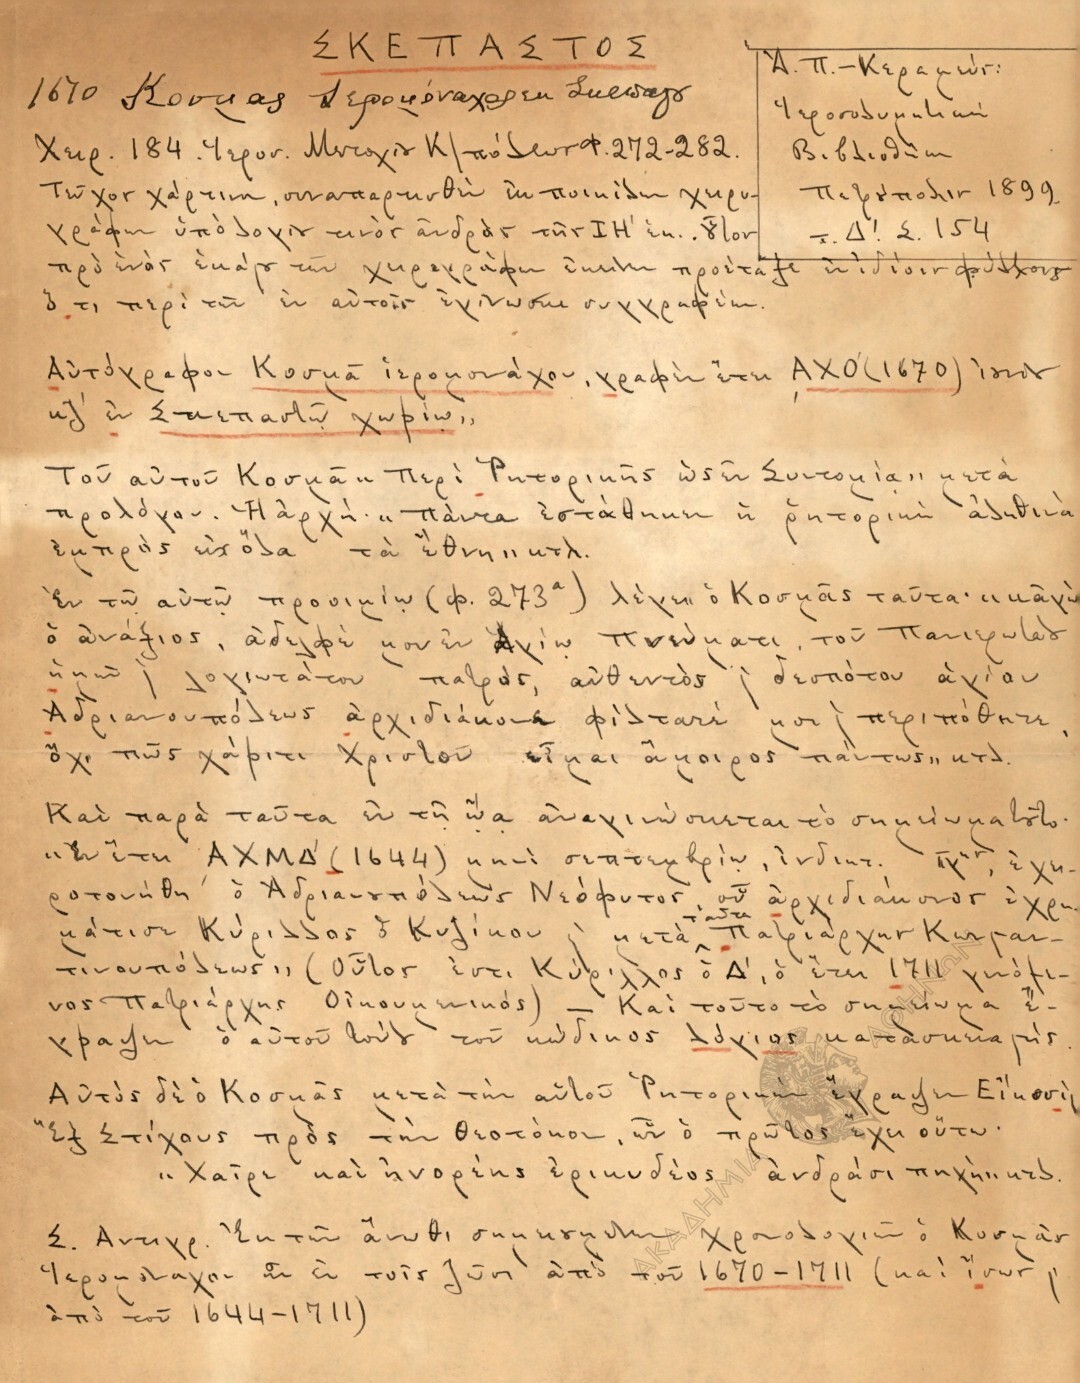 ΣΚΕΠΑΣΤΟΣ
1670 Κοσμας Ιερομόναχος εκ
Ἀ. Π.-Κεραμεύς:
Ἱεροσολυμιτική
Βιβλιοθήκη
Πετρούπολιν 1899
τ. Δ'. Σ. 154
Χειρ. 184. Ἱερον. Μετοχίου Κ/πόλεως Φ. 272-282.
Τεῦχος χάρτινον, συναπαρτισθὲν ἐκ ποικίλων χειρο-
γράφων ὑπὸ λογίου τινὸς ἀνδρὸς τῆς ΙΗ' ἑκ.. ὅστις
πρὸ ἑνὸς ἑκάστου τῶν χειρογράφων ἐκείνων προέταξε ἐν ἰδίοις φύλλοις
ὅ,τι περὶ τῶν ἐν αὐτοῖς ἐγίνωσκε συγγραφέων.
Αὐτόγραφον Κοσμᾶ ἱερομονάχου, γραφὲν ἔτει ͵ΑΧΟ' (1670)
κζ' ἐν Σκεπαστῷ χωρίῳ„
Τοῦ αὐτοῦ Κοσμᾶ « Περὶ Ῥητορικῆς ὡς ἐν Συντομίᾳ„ μετὰ
προλόγου. Ἡ ἀρχή· « Πάντα ἐστάθηκεν ἡ ῥητορικὴ ἀληθινὰ
ἐμπρὸς εἰς ὅλα τὰ ἔθνη„ κτλ.
Ἐν τῷ αὐτῷ προοιμίῳ (φ. 273ᵃ) λέγει ὁ Κοσμᾶς ταῦτα· « κἀγὼ
ὁ ἀνάξιος, ἀδελφέ μου ἐν Ἁγίῳ Πνεύματι, τοῦ Πανιερωτάτου
ἡμῶν καὶ λογιωτάτου πατρός, αὐθεντὸς καὶ δεσπότου ἁγίου
Ἀδριανουπόλεως ἀρχιδιάκονε φίλτατέ μοι καὶ περιπόθητε,
ὄχι πῶς χάριτι Χριστοῦ εἶμαι ἄμοιρος πάντως„ κτλ.
Καὶ παρὰ ταῦτα ἐν τῇ ᾤᾳ ἀναγινώσκεται τὸ σημείωμα τοῦτο·
« Ἐν ἔτει ΑΧΜΔ' (1644) μηνὶ σεπτεμβρίῳ, ἰνδικτ. ἐχει-
ροτονήθη ὁ Ἀδριανουπόλεως Νεόφυτος, οὗ ἀρχιδιάκονος ἐχρη-
μάτισε Κύριλλος ὁ Κυζίκου καὶ μετὰ ταῦτα Πατριάρχης Κωνσταν-
τινουπόλεως„ (Οὗτος ἐστι Κύριλλος ὁ Δ', ὁ ἔτει 1711 γινόμε-
νος Πατριάρχης Οἰκουμενικός) — Καὶ τοῦτο τὸ σημείωμα ἔ-
γραψεν ὁ αὐτοῦ τοῦ κώδικος λόγιος κατασκευαστής.
Αὐτὸς δὲ ὁ Κοσμᾶς μετὰ τὴν αὐτοῦ Ῥητορικὴν ἔγραψεν Εἴκοσι
Ἓξ Στίχους πρὸς τὴν Θεοτόκον, ὧν ὁ πρῶτος ἔχει οὕτω·
« Χαῖρε καὶ ἠνορέης ἐρικυδέος ἀνδράσι πηγή„ κτλ.
Σ. Αντιγρ. Ἐκ τῶν ἄνωθι σημειουμένων χρονολογιῶν ὁ Κοσμᾶς
Ἱερομόναχος ἐν τοῖς ζῶσι ἀπὸ τοῦ 1670-1711 (καὶ ἴσως καὶ
ἀπὸ τοῦ 1644-1711)
ΑΚΑΔΗΜΙΑ ΑΘΗΝΩΝ